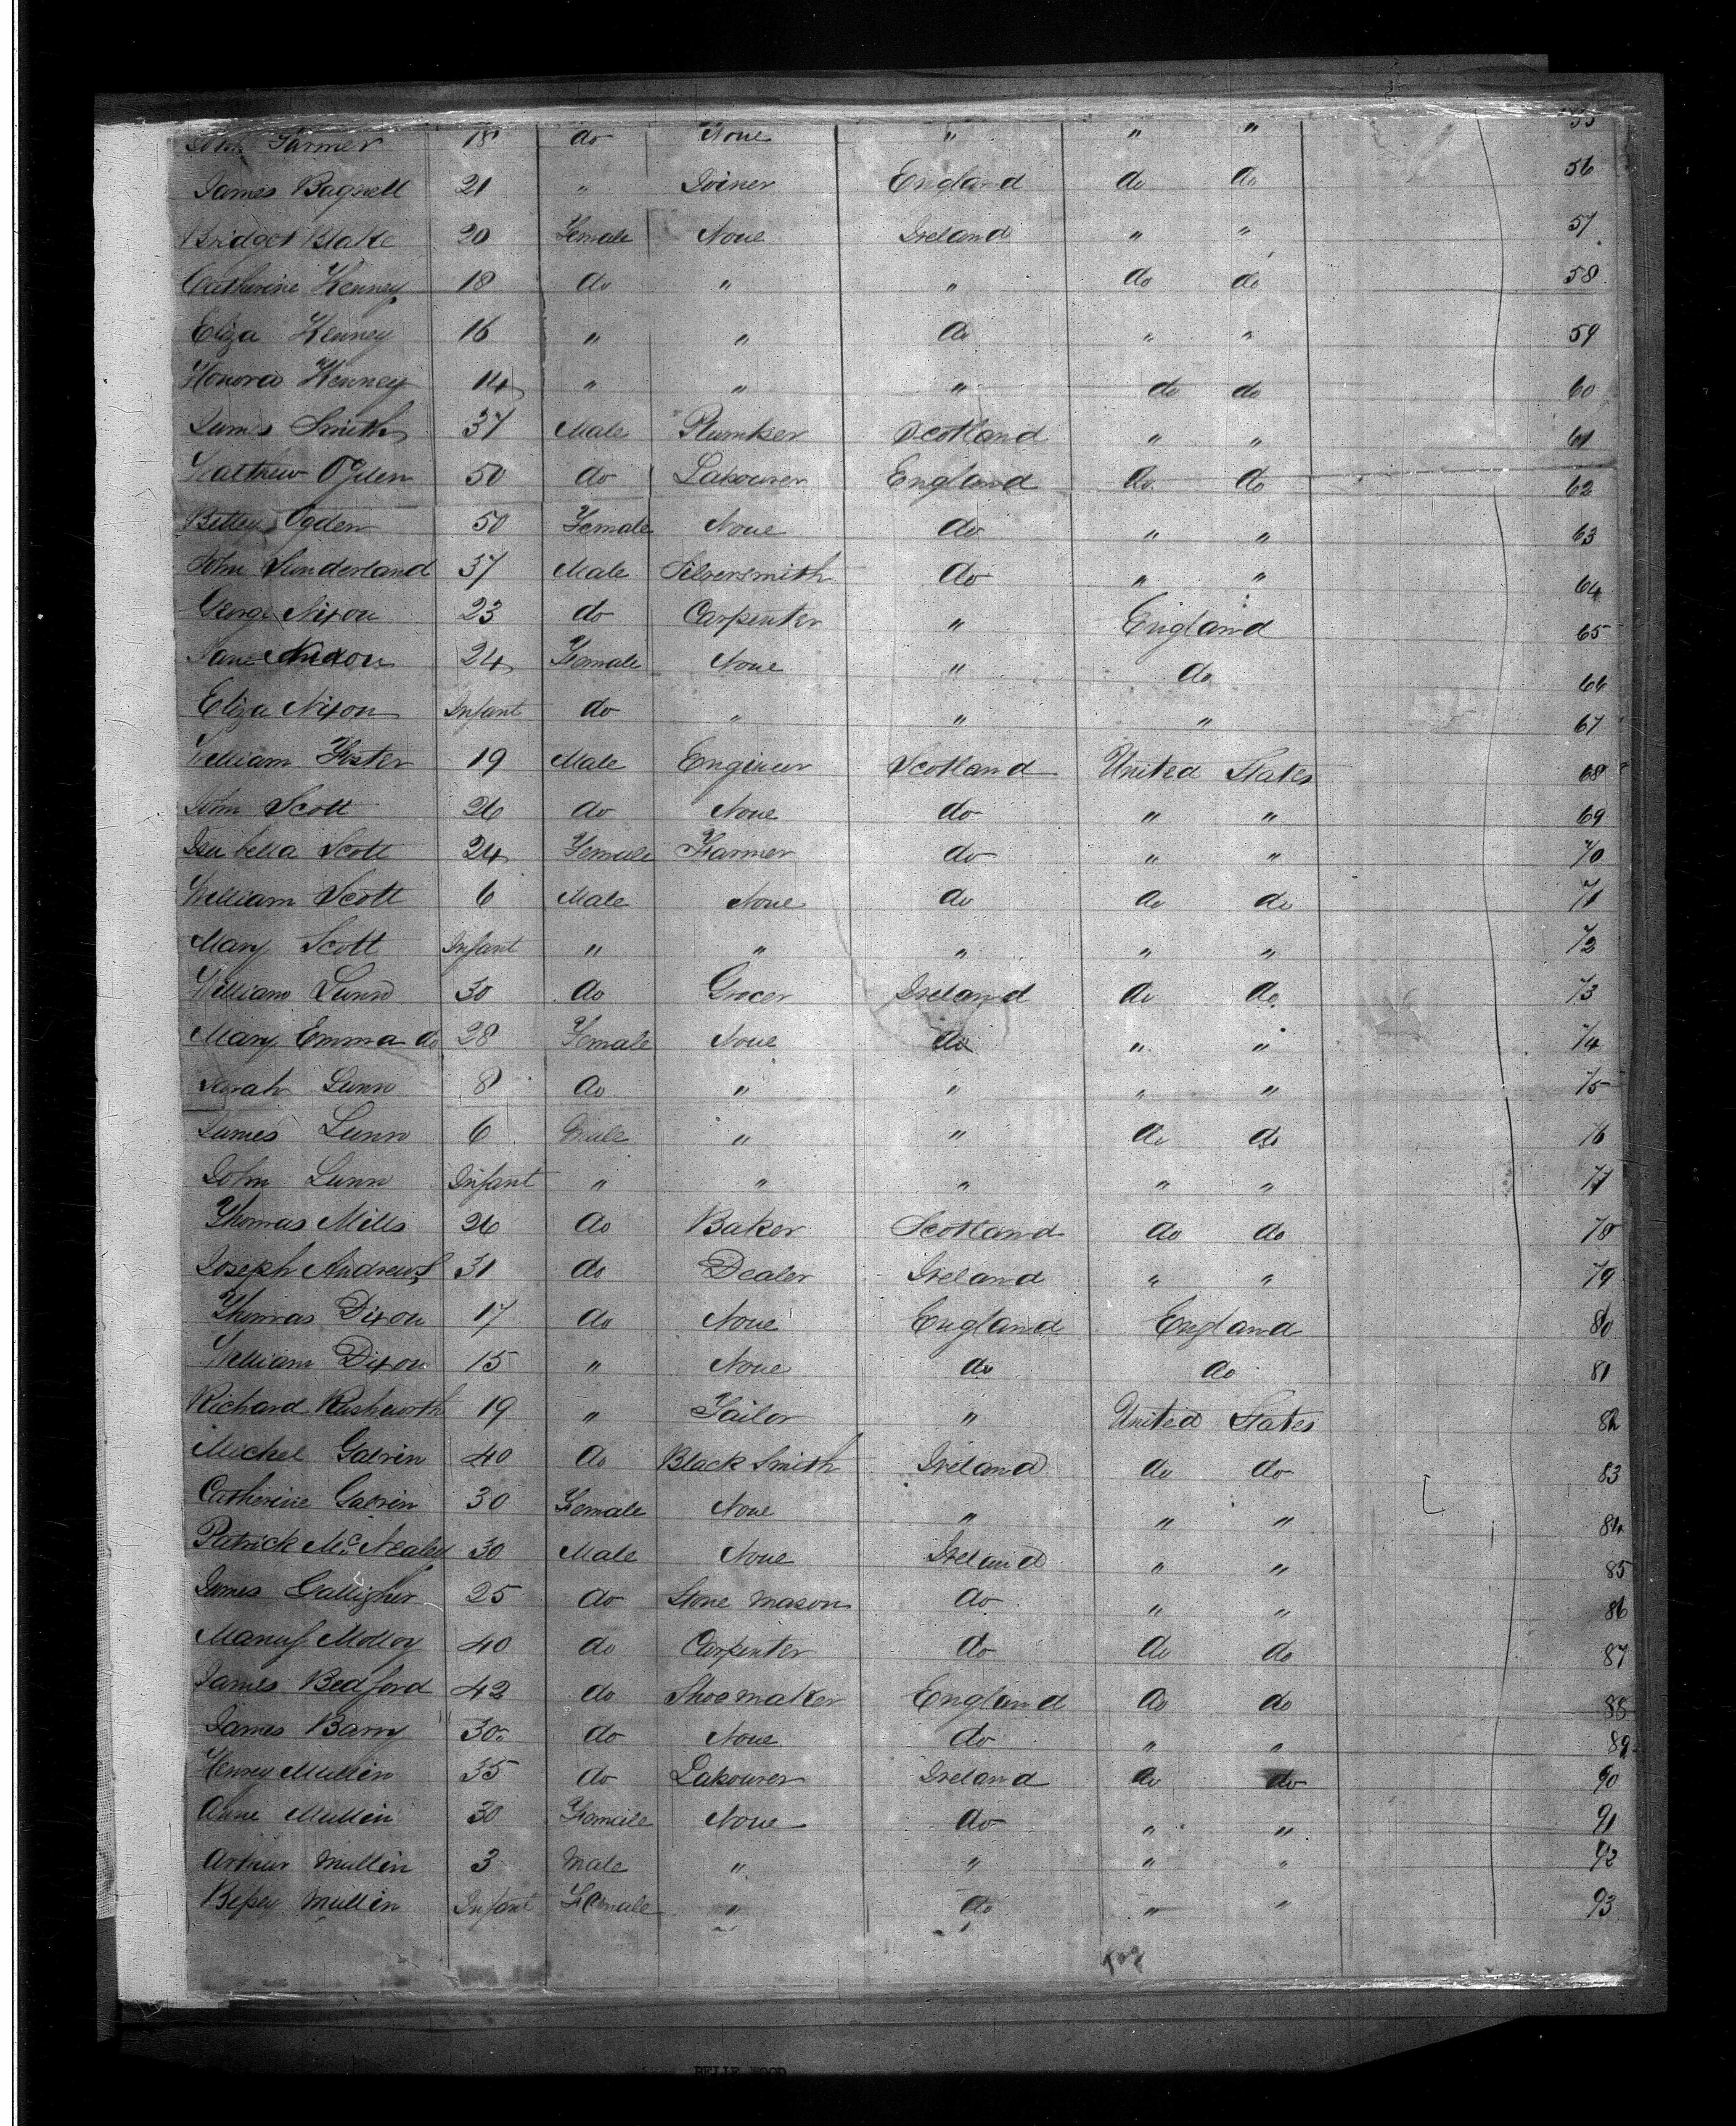 John Farmer 18 do None " " " 55
James Bagnell 21 " Joiner England do do 56
Bridget Blake 20 Female None Ireland " " 57
Catherine Kenney 18 do " " do do 58
Eliza Kenney 16 " " do " " 59
Honora Kenney 14 " " " do do 60
James Smith 37 Male Plumber Scotland " " 61
Matthew Ogden 50 do Labourer England do do 62
Bettey Ogden 50 Female None do " " 63
John Sunderland 37 Male Silversmith do " " 64
George Nixon 23 do Carpenter " England 65
Jane Nixon 24 Female None " do 66
Eliza Nixon Infant do " " " 67
William Foster 19 Male Engineer Scotland United States 68
John Scott 26 do None do " " 69
Isabella Scott 24 Female Farmer do " " 70
William Scott 6 Male None do do do 71
Mary Scott Infant " " " " " 72
William Lunn 30 do Grocer Ireland do do 73
Mary Emma do 28 Female None do " " 74
Sarah Lunn 8 do " " " " 75
James Lunn 6 Male " " do do 76
John Lunn Infant " " " " " 77
Thomas Mills 26 do Baker Scotland do do 78
Joseph Andrews 31 do Dealer Ireland " " 79
Thomas Dixon 17 do None England England 80
William Dixon 15 " None do do 81
Richard Rushworth 19 " Tailor " United States 82
Michel Galvin 40 do Black Smith Ireland do do 83
Catherine Galvin 30 Female None " " " 84
Patrick McNealey 30 Male None Ireland " " 85
James Galligher 25 do Stone Mason do " " 86
Molloy 40 do Carpenter do do do 87
James Bedford 42 do Shoemaker England do do 88
James Barry 30 do None do " " 89
Henry Mullin 35 do Labourer Ireland do do 90
Anne Mullin 30 Female None do " " 91
Arthur Mullin 3 Male " " " " 92
Bessey Mullin Infant Female " do " " 93
BELLE WOOD